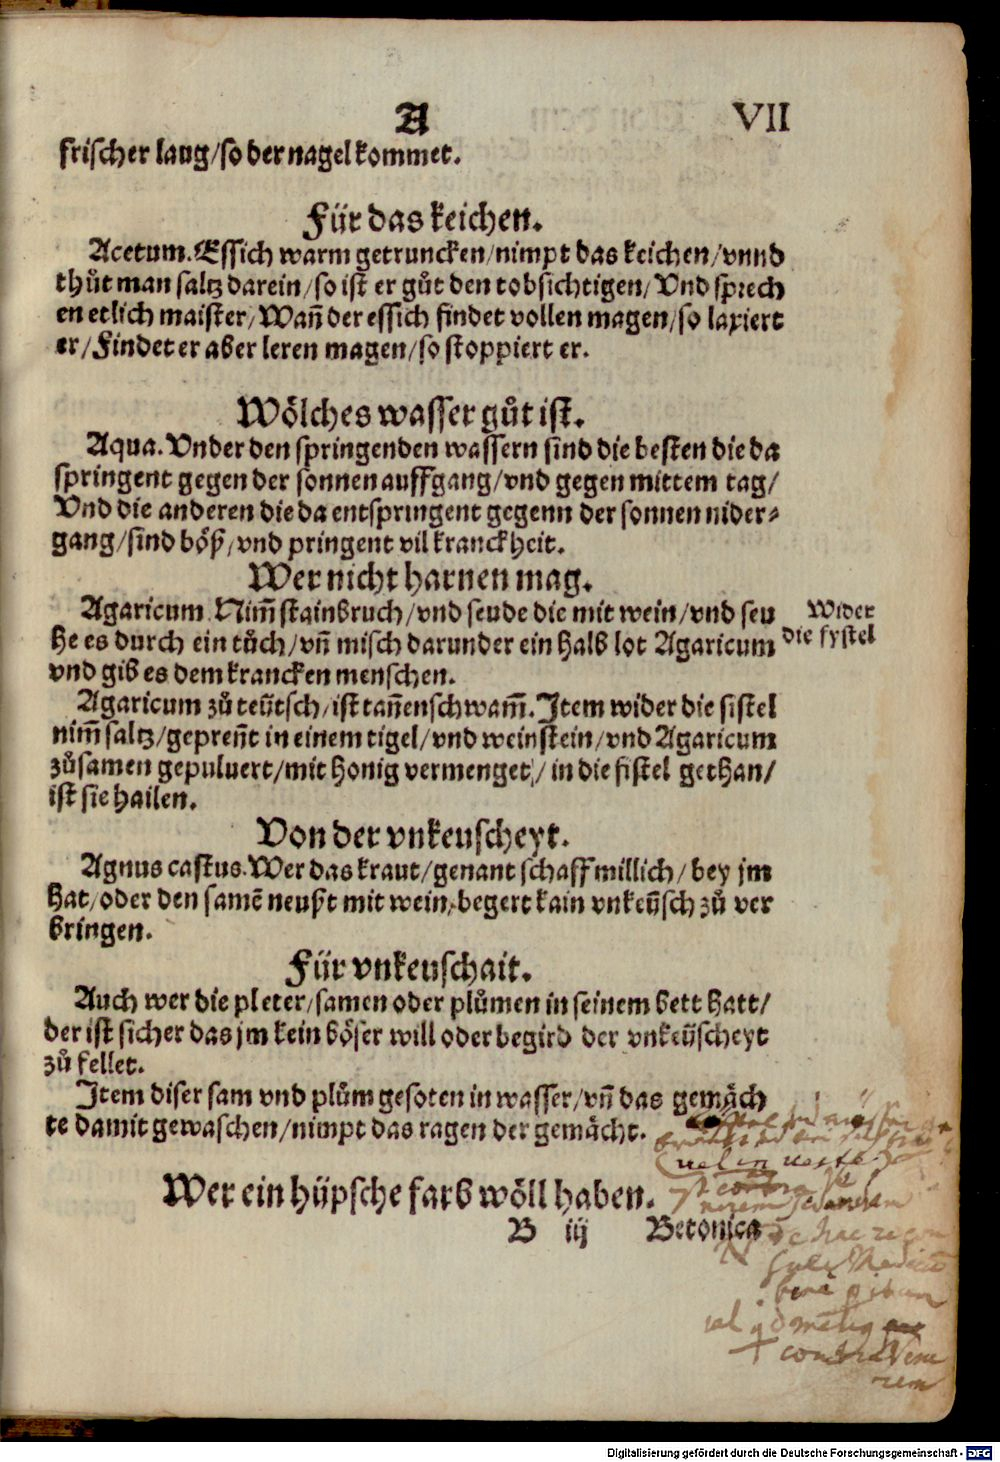 A VII
frischer laug/so der nagel kommet.
Für das keichen.
Acetum. Essich warm getruncken/nimpt das keichen/vnnd
thůt man saltz darein/so ist er gůt den tobsichtigen/Vnd sprech
en etlich maister/Wañ der essich findet vollen magen/so laxiert
er/Findet er aber leren magen/so stoppiert er.
Wölches wasser gůt ist.
Aqua. Vnder den springenden wassern sind die besten die da
springent gegen der sonnen auffgang/vnd gegen mittem tag/
Vnd die anderen die da entspringent gegenn der sonnen nider-
gang/sind böß/vnd pringent vil kranckheit.
Wer nicht harnen mag.
Agaricum. Nim̄ stainbruch/vnd seude die mit wein/vnd seu
he es durch ein tůch/vñ misch darunder ein halb lot Agaricum
vnd gib es dem krancken menschen.
Wider
die fystel
Agaricum zů teütsch/ist tañenschwam̄. Item wider die fistel
nim̄ saltz/geprent in einem tigel/vnd weinstein/vnd Agaricum
zůsamen gepuluert/mit honig vermenget/in die fistel gethan/
ist sie hailen.
Von der vnkeuscheyt.
Agnus castus. Wer das kraut/genant schaffmillich/bey jm
hat/oder den samē neußt mit wein/begert kain vnkeüsch zů ver
bringen.
Für vnkeuschait.
Auch wer die pleter/samen oder plůmen in seinem bett hatt/
der ist sicher das jm kein böser will oder begird der vnkeüscheyt
zů fellet.
Item diser sam vnd plům gesoten in wasser/vñ das gemäch
te damit gewaschen/nimpt das ragen der gemächt.
Wer ein hüpsche farb wöll haben.
B iij Betonica
vel in veste
contra
vel
contra Vene
rem